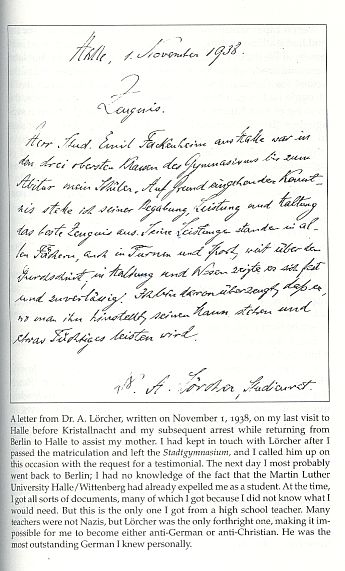 Halle, 1. November 1938.
Zeugnis.
Herr Stud. Emil Fackenheim aus Halle war in
den drei obersten Klassen des Gymnasiums bis zum
Abitur mein Schüler. Auf Grund eingehender Kennt-
nis stelle ich seiner Begabung, Leistung und Haltung
das beste Zeugnis aus. Seine Leistungen standen in al-
len Fächern, auch in Turnen und Sport, weit über dem
Durchschnitt, in Haltung und Wesen zeigte er sich fest
und zuverlässig. Ich bin davon überzeugt, daß er,
wo man ihn hinstellt, seinen Mann stehen und
etwas Tüchtiges leisten wird.
Dr. A. Lörcher, Studienrat.
A letter from Dr. A. Lörcher, written on November 1, 1938, on my last visit to
Halle before Kristallnacht and my subsequent arrest while returning from
Berlin to Halle to assist my mother. I had kept in touch with Lörcher after I
passed the matriculation and left the Stadtgymnasium, and I called him up on
this occasion with the request for a testimonial. The next day I most probably
went back to Berlin; I had no knowledge of the fact that the Martin Luther
University Halle/Wittenberg had already expelled me as a student. At the time,
I got all sorts of documents, many of which I got because I did not know what I
would need. But this is the only one I got from a high school teacher. Many
teachers were not Nazis, but Lörcher was the only forthright one, making it im-
possible for me to become either anti-German or anti-Christian. He was the
most outstanding German I knew personally.